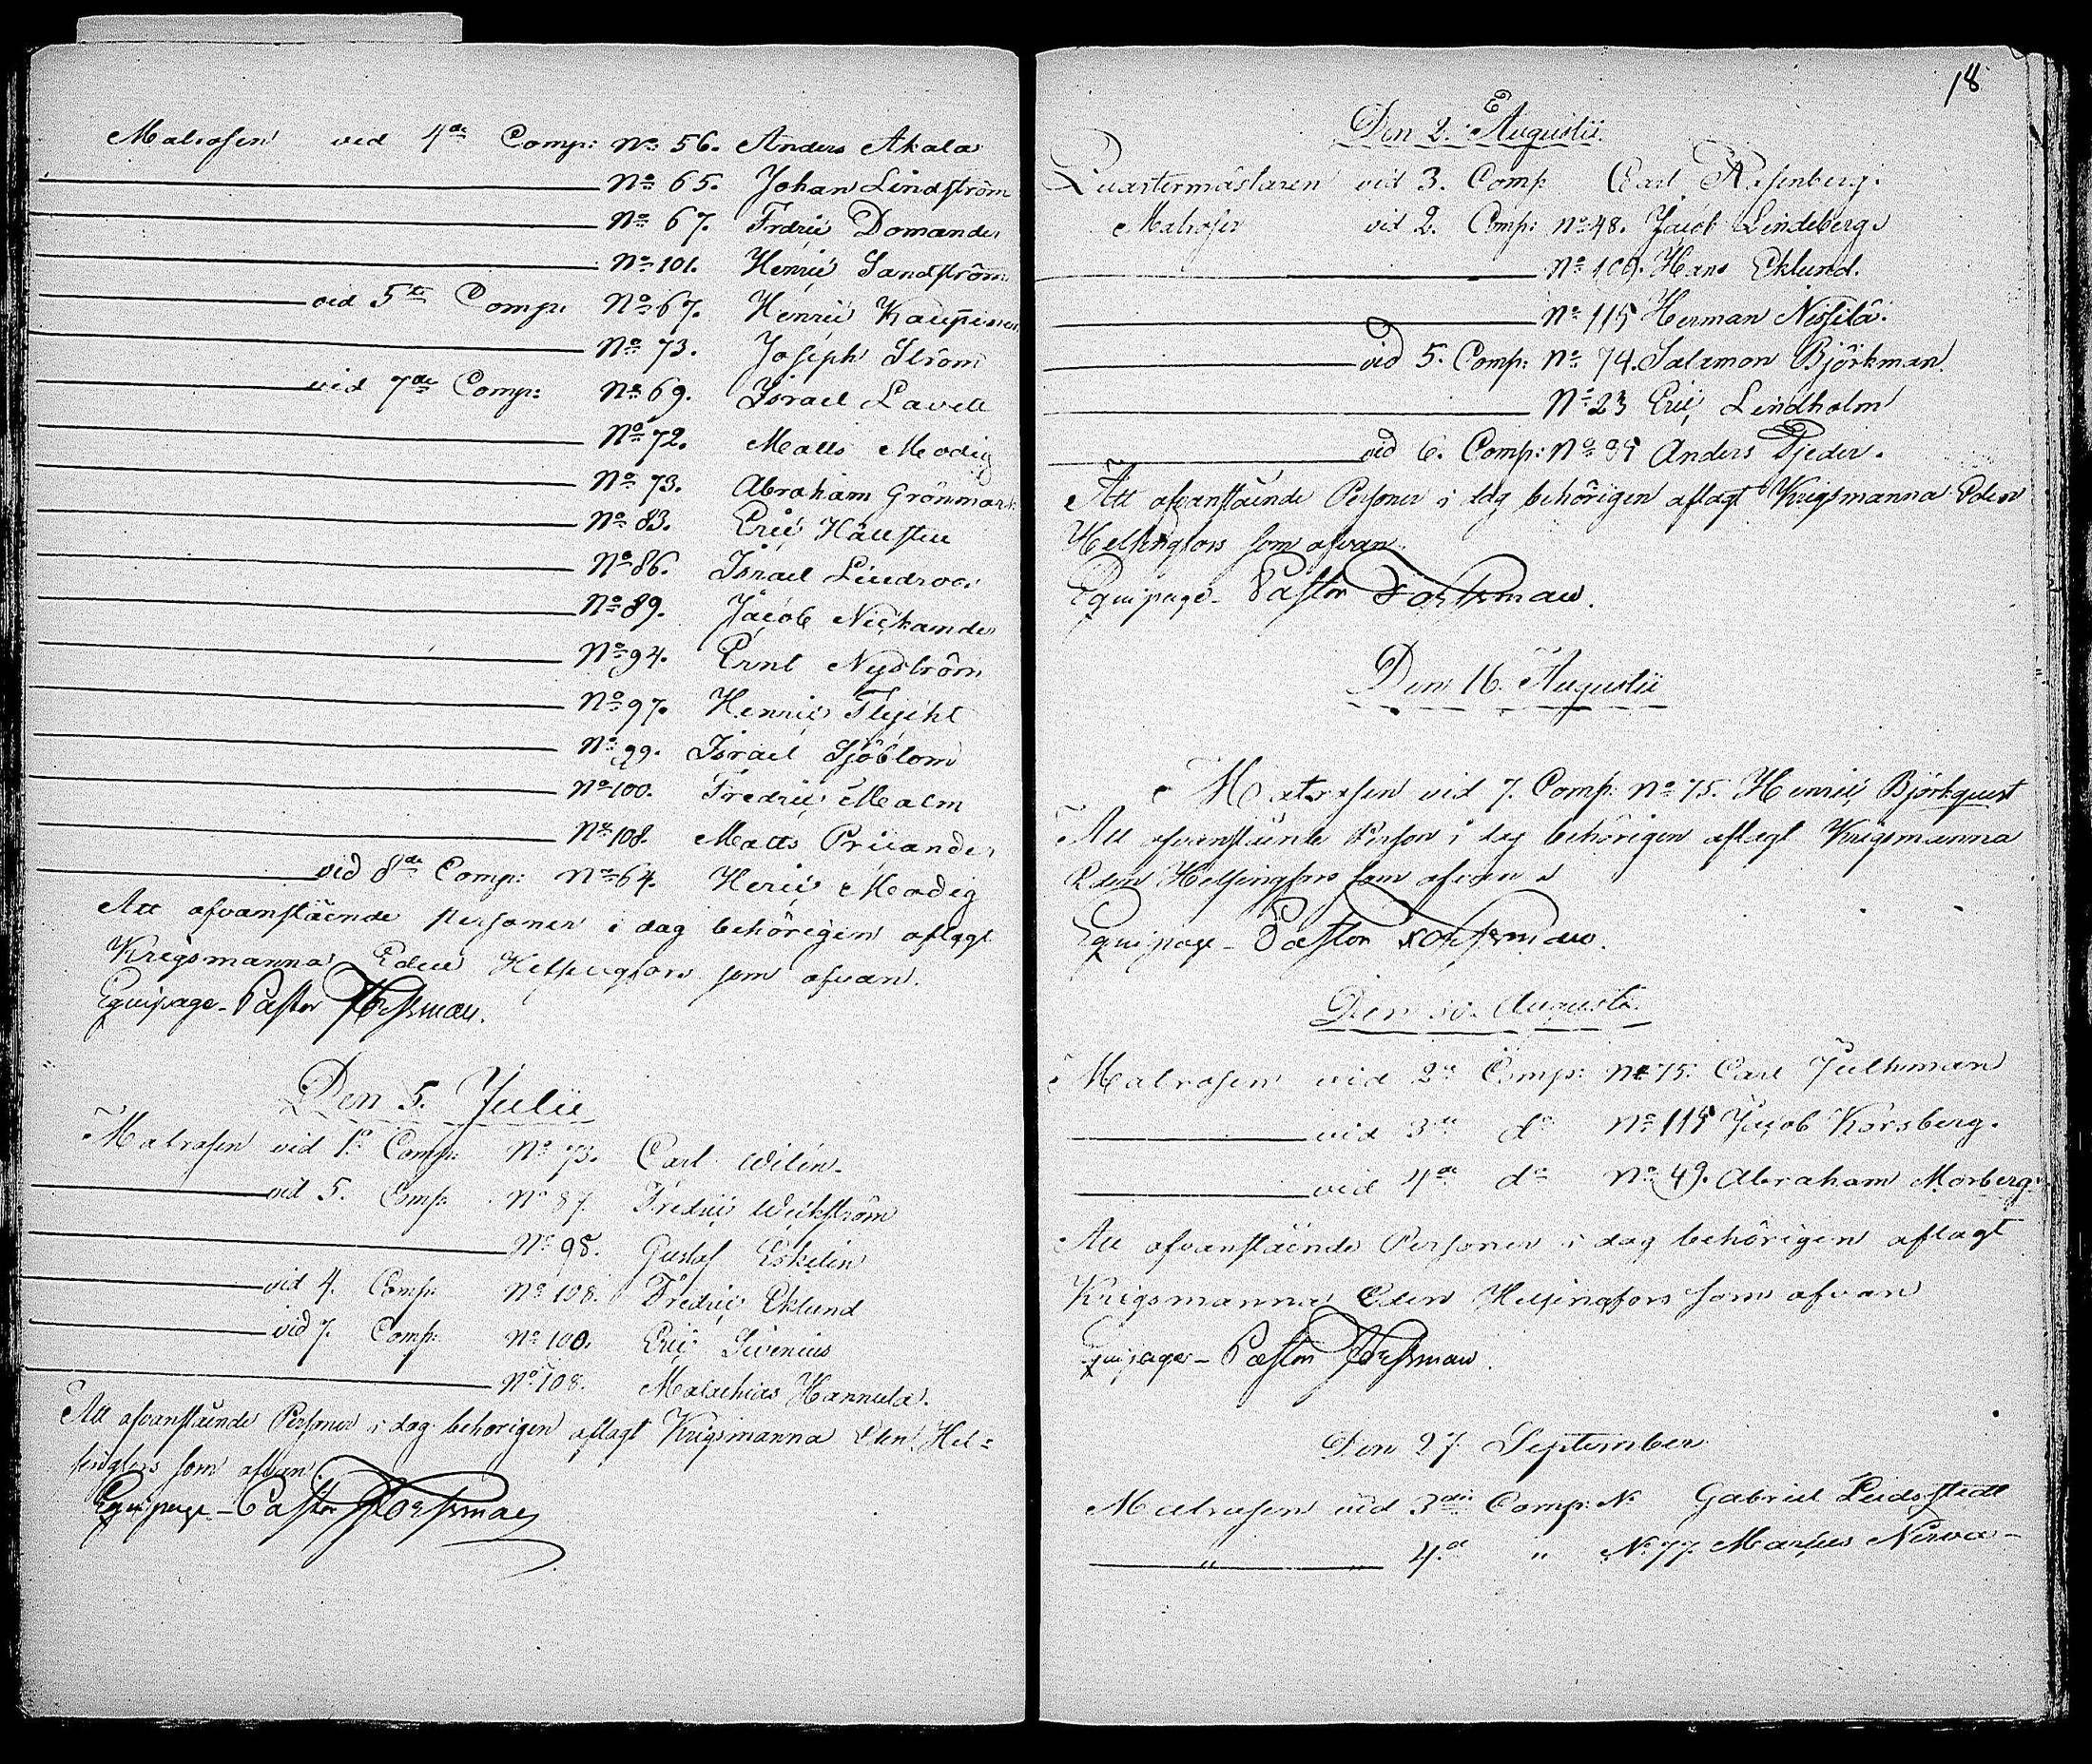 Matrosen vid 4de Comp: No 56. Anders Akala
No 65. Johan Lindström
No 67. Fredric Domander
No 101. Henric Sandström
vid 5te Comp: No 67. Henric Kaupinen
No 73. Joseph Ström
vid 7de Comp: No 69. Israel Lavell
No 72. Matts Modig
No 73. Abraham Grönmark
No 83. Eric
No 86. Israel Lindroos
No 89. Jacob Nickander
No 94. Ernt Nyström
No 97. Henric Flycht
No 99. Israel Sjöblom
No 100. Fredric Malm
No 108. Matts Priiander
vid 8de Comp: No 64. Heric Modig
Att ofvanstående personer i dag behörigen aflagt
Krigsmanna Eden Helsingfors som ofvan.
Equipage-Pastor Forssman.
Den 5. Julii
Matrosen vid 1a Comp: No 73. Carl Wilén.
vid 5. Comp: No 87. Fredric Weckström
No 98. Gustaf Eskelin
vid 4. Comp: No 108. Fredric Eklund
vid 7. Comp: No 100. Eric Sivenius
No 108. Matthias Hannula.
Att ofvanstående Personer i dag behörigen aflagt Krigsmanna Eden Hel=
singfors som ofvan.
Equipage-Pastor Forssman
18
Den 2. Augustii.
Quartermästaren vid 3. Comp: Carl Rosenberg.
Matrosen vid 2. Comp: No 48. Jacob Lindeberg
No 109. Hans Eklund.
No 115 Herman Nissilä.
vid 5. Comp: No 74. Salamon Björkman.
No 23 Eric Lindholm
vid 6. Comp: No 89 Anders Djeder.
Att ofvanstående Personer i dag behörigen aflagt Krigsmanna Eden
Helsingfors som ofvan.
Equipage-Pastor Forssman.
Den 16. Augustii
Matrosen vid 7. Comp: No 75. Henric Björkquist
Att ofvanstående Person i dag behörigen aflagt Krigsmanna
Eden Helsingfors som ofvan
Equipage-Pastor Forssman.
Den 30. Augusti.
Matrosen vid 2a Comp: No 75. Carl Julkman
vid 3de do No 115 Jacob Korsberg.
vid 4de do No 49. Abraham Morberg.
Att ofvanstående Personer i dag behörigen aflagt
Krigsmanna Eden Helsingfors som ofvan
Equipage-Pastor Forssman.
Den 27. September
Matrosen vid 3die Comp: No Gabriel Lidsstedt
" " 4de " No 77. Marcus Nirva